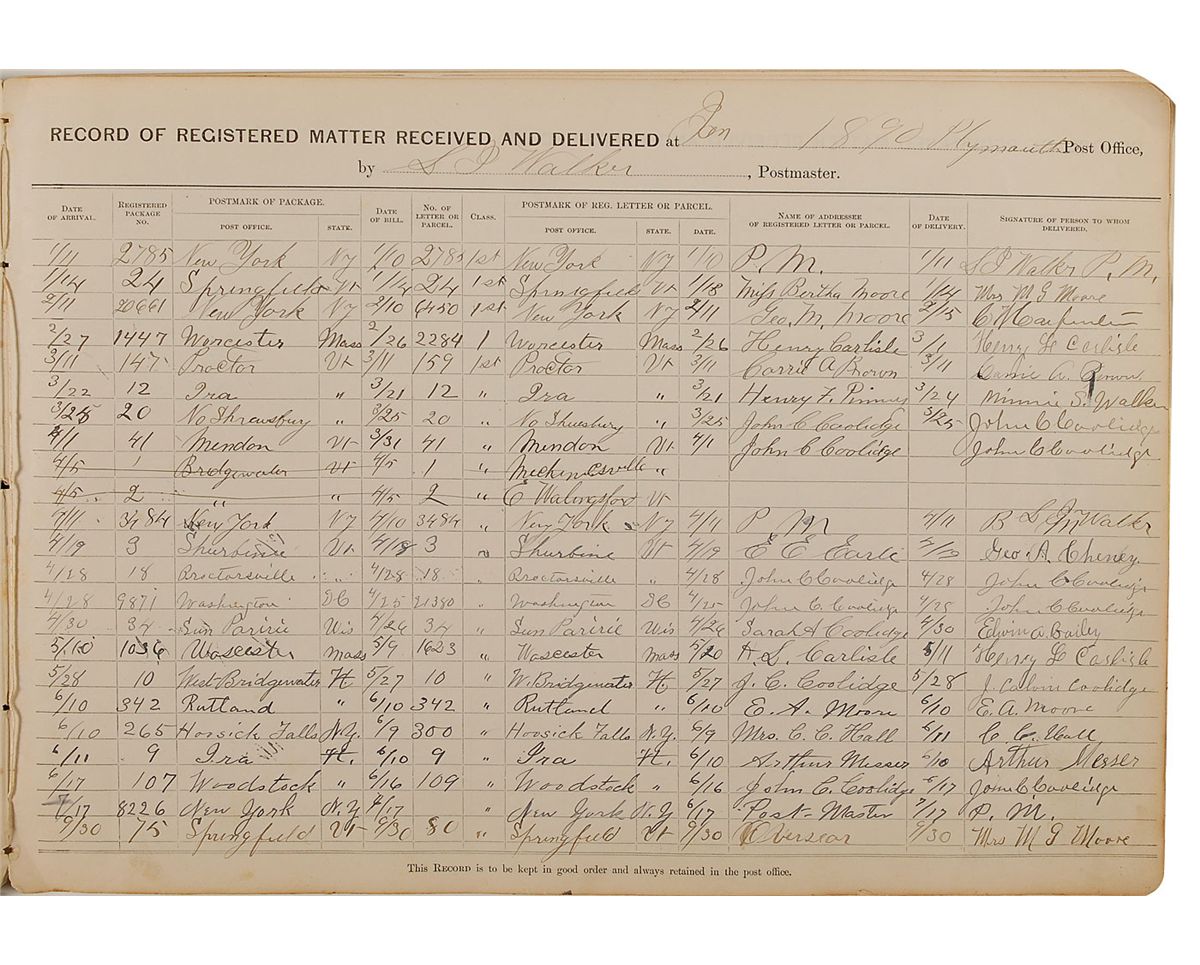 RECORD OF REGISTERED MATTER RECEIVED AND DELIVERED at Jan 1890 Plymouth Post Office,
by S J Walker, Postmaster.
DATE OF ARRIVAL. REGISTERED PACKAGE NO. POSTMARK OF PACKAGE. POST OFFICE. STATE. DATE OF BILL. NO. OF LETTER OR PARCEL. CLASS. POSTMARK OF REG. LETTER OR PARCEL. POST OFFICE. STATE. DATE. NAME OF ADDRESSEE OF REGISTERED LETTER OR PARCEL. DATE OF DELIVERY. SIGNATURE OF PERSON TO WHOM DELIVERED.
1/11 2785 New York NY 1/10 2785 1st New York NY 1/10 P. M. 1/11 S J Walker P. M.
1/14 24 Springfield Vt 1/14 24 1st Springfield Vt 1/13 Miss Bertha Moore 1/14 Mrs M G Moore
2/11 20661 New York NY 2/10 6450 1st New York NY 2/11 Geo. M. Moore 2/15 C N Carpenter
2/27 1447 Worcester Mass 2/26 2284 1 Worcester Mass 2/26 Henry Carlisle 3/1 Henry L Carlisle
3/11 147 Proctor Vt 3/11 159 1st Proctor Vt 3/11 Carrie A Brown 3/11 Carrie A. Brown
3/22 12 Ira " 3/21 12 " Ira " 3/21 Henry F. Pinney 3/24 Minnie S. Walker
3/25 20 No Shrewsbury " 3/25 20 " No Shrewsbury " 3/25 John C Coolidge 3/25 John C Coolidge
4/1 41 Mendon Vt 3/31 41 " Mendon Vt 4/1 John C Coolidge John C Coolidge
4/5 1 Bridgewater Vt 4/5 1 " Mechanicsville "
4/5 2 " " 4/5 2 " E Walingsford Vt
4/11 3484 New York NY 4/10 3484 " New York NY 4/11 P M 4/11 S J Walker
4/19 3 Shurbine Vt 4/18 3 " Shurbine Vt 4/19 E E Earle 4/19 Geo. A. Cheney.
4/28 18 Proctorsville " 4/28 18 " Proctorsville " 4/28 John C Coolidge 4/28 John C Coolidge
4/28 9871 Washington DC 4/25 21380 " Washington DC 4/25 John C. Coolidge 4/25 John C Coolidge
4/30 34 Sun Pairie Wis 4/26 34 " Sun Pairie Wis 4/26 Sarah A Coolidge 4/30 Edwin A. Bailey
5/10 1036 Worcester Mass 5/9 1623 " Worcester Mass 5/20 H. L. Carlisle 5/11 Henry L Carlisle
5/28 10 West Bridgewater Vt. 5/27 10 " W. Bridgewater Vt. 5/27 J. C. Coolidge 5/28 J. Calvin Coolidge
6/10 342 Rutland " 6/10 342 " Rutland " 6/10 E. A. Moore 6/10 E. A. Moore
6/10 265 Hoosick Falls N.Y. 6/9 300 " Hoosick Falls N.Y. 6/9 Mrs. C. C. Hall 6/11 C C. Hall
6/11 9 Ira Vt. 6/10 9 " Ira Vt. 6/10 Arthur Messer 6/10 Arthur Messer
6/17 107 Woodstock " 6/16 109 " Woodstock " 6/16 John C. Coolidge 6/17 John C. Coolidge
7/17 8226 New York N.Y. 7/17 " New York N.Y. 6/17 Post-Master 7/17 P. M.
9/30 75 Springfield Vt 9/30 80 " Springfield Vt 9/30 Oversear 9/30 Mrs M G Moore
This RECORD is to be kept in good order and always retained in the post office.